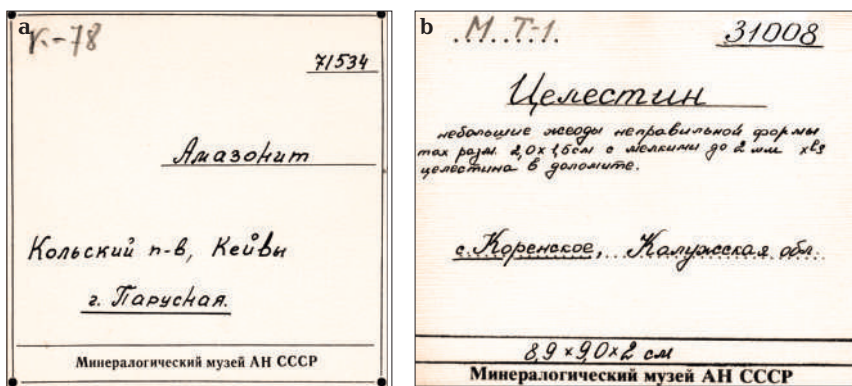 a
К-78
71534
Амазонит
Кольский п-в, Кейвы
г. Парусная.
Минералогический музей АН СССР
b
М Т-1.
31008
Целестин
небольшие жеоды неправильной формы
max разм. 2,0х1,5см с мелкими до 2 мм xls
целестина в доломите.
с. Коренское, Калужская обл.
8,9×9,0×2 см
Минералогический музей АН СССР